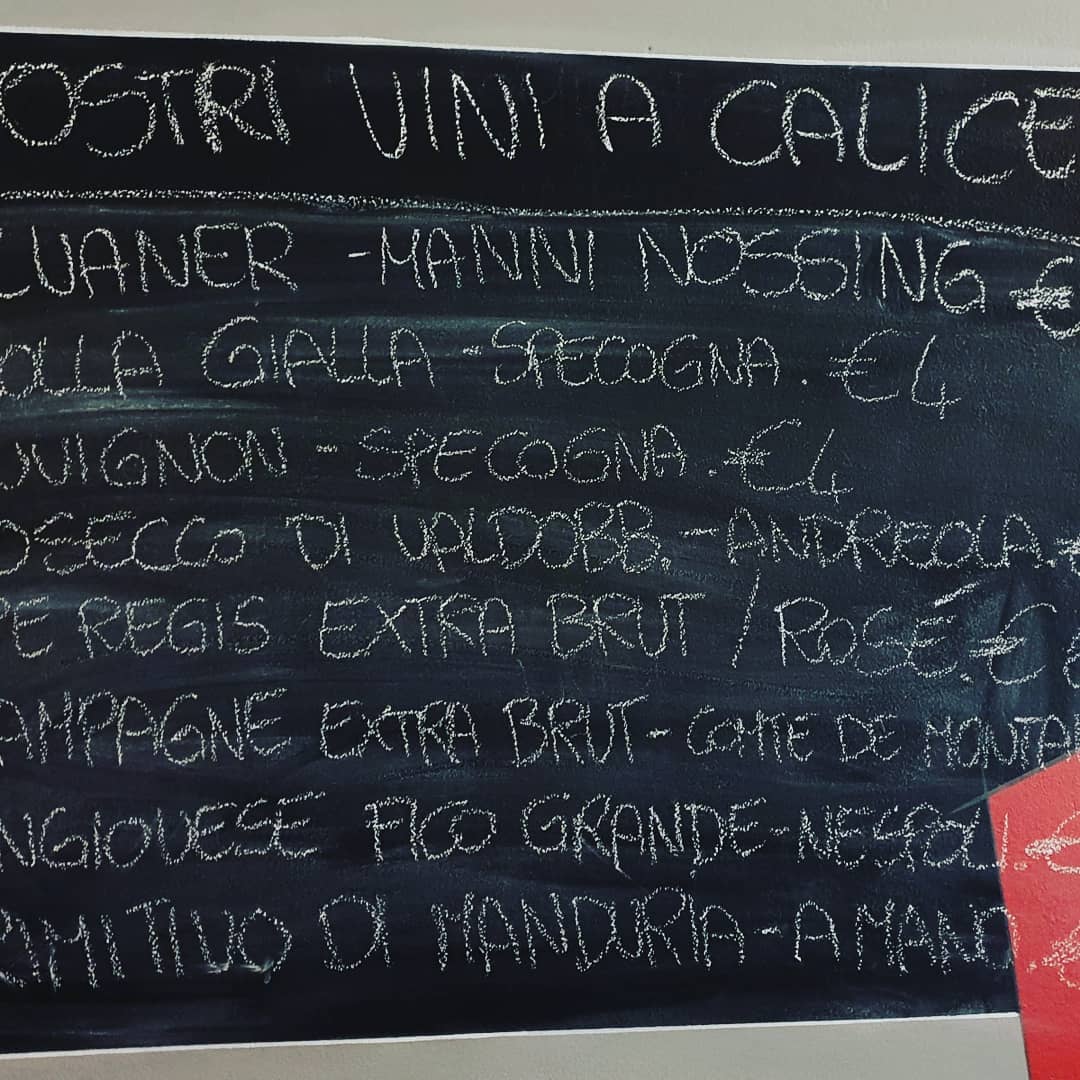 OSTRI VINI A CALICE
LVANER - MANNI NOSSING €
OLLA GIALLA - SPECOGNA. €4
UVIGNON - SPECOGNA. €4
OSECCO DI VALDOBB. - ANDREOLA. €
PE REGIS EXTRA BRUT / ROSÉ. €
AMPAGNE EXTRA BRUT - COMTE DE MONTA
NGIOVESE FICO GRANDE - NESPOLI. €
IMITIVO DI MANDURIA - A MANO.